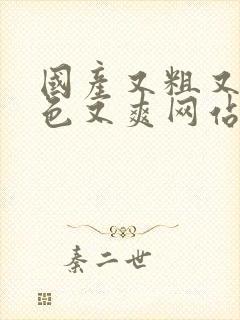 國產又粗又
色文爽网佔
秦二世